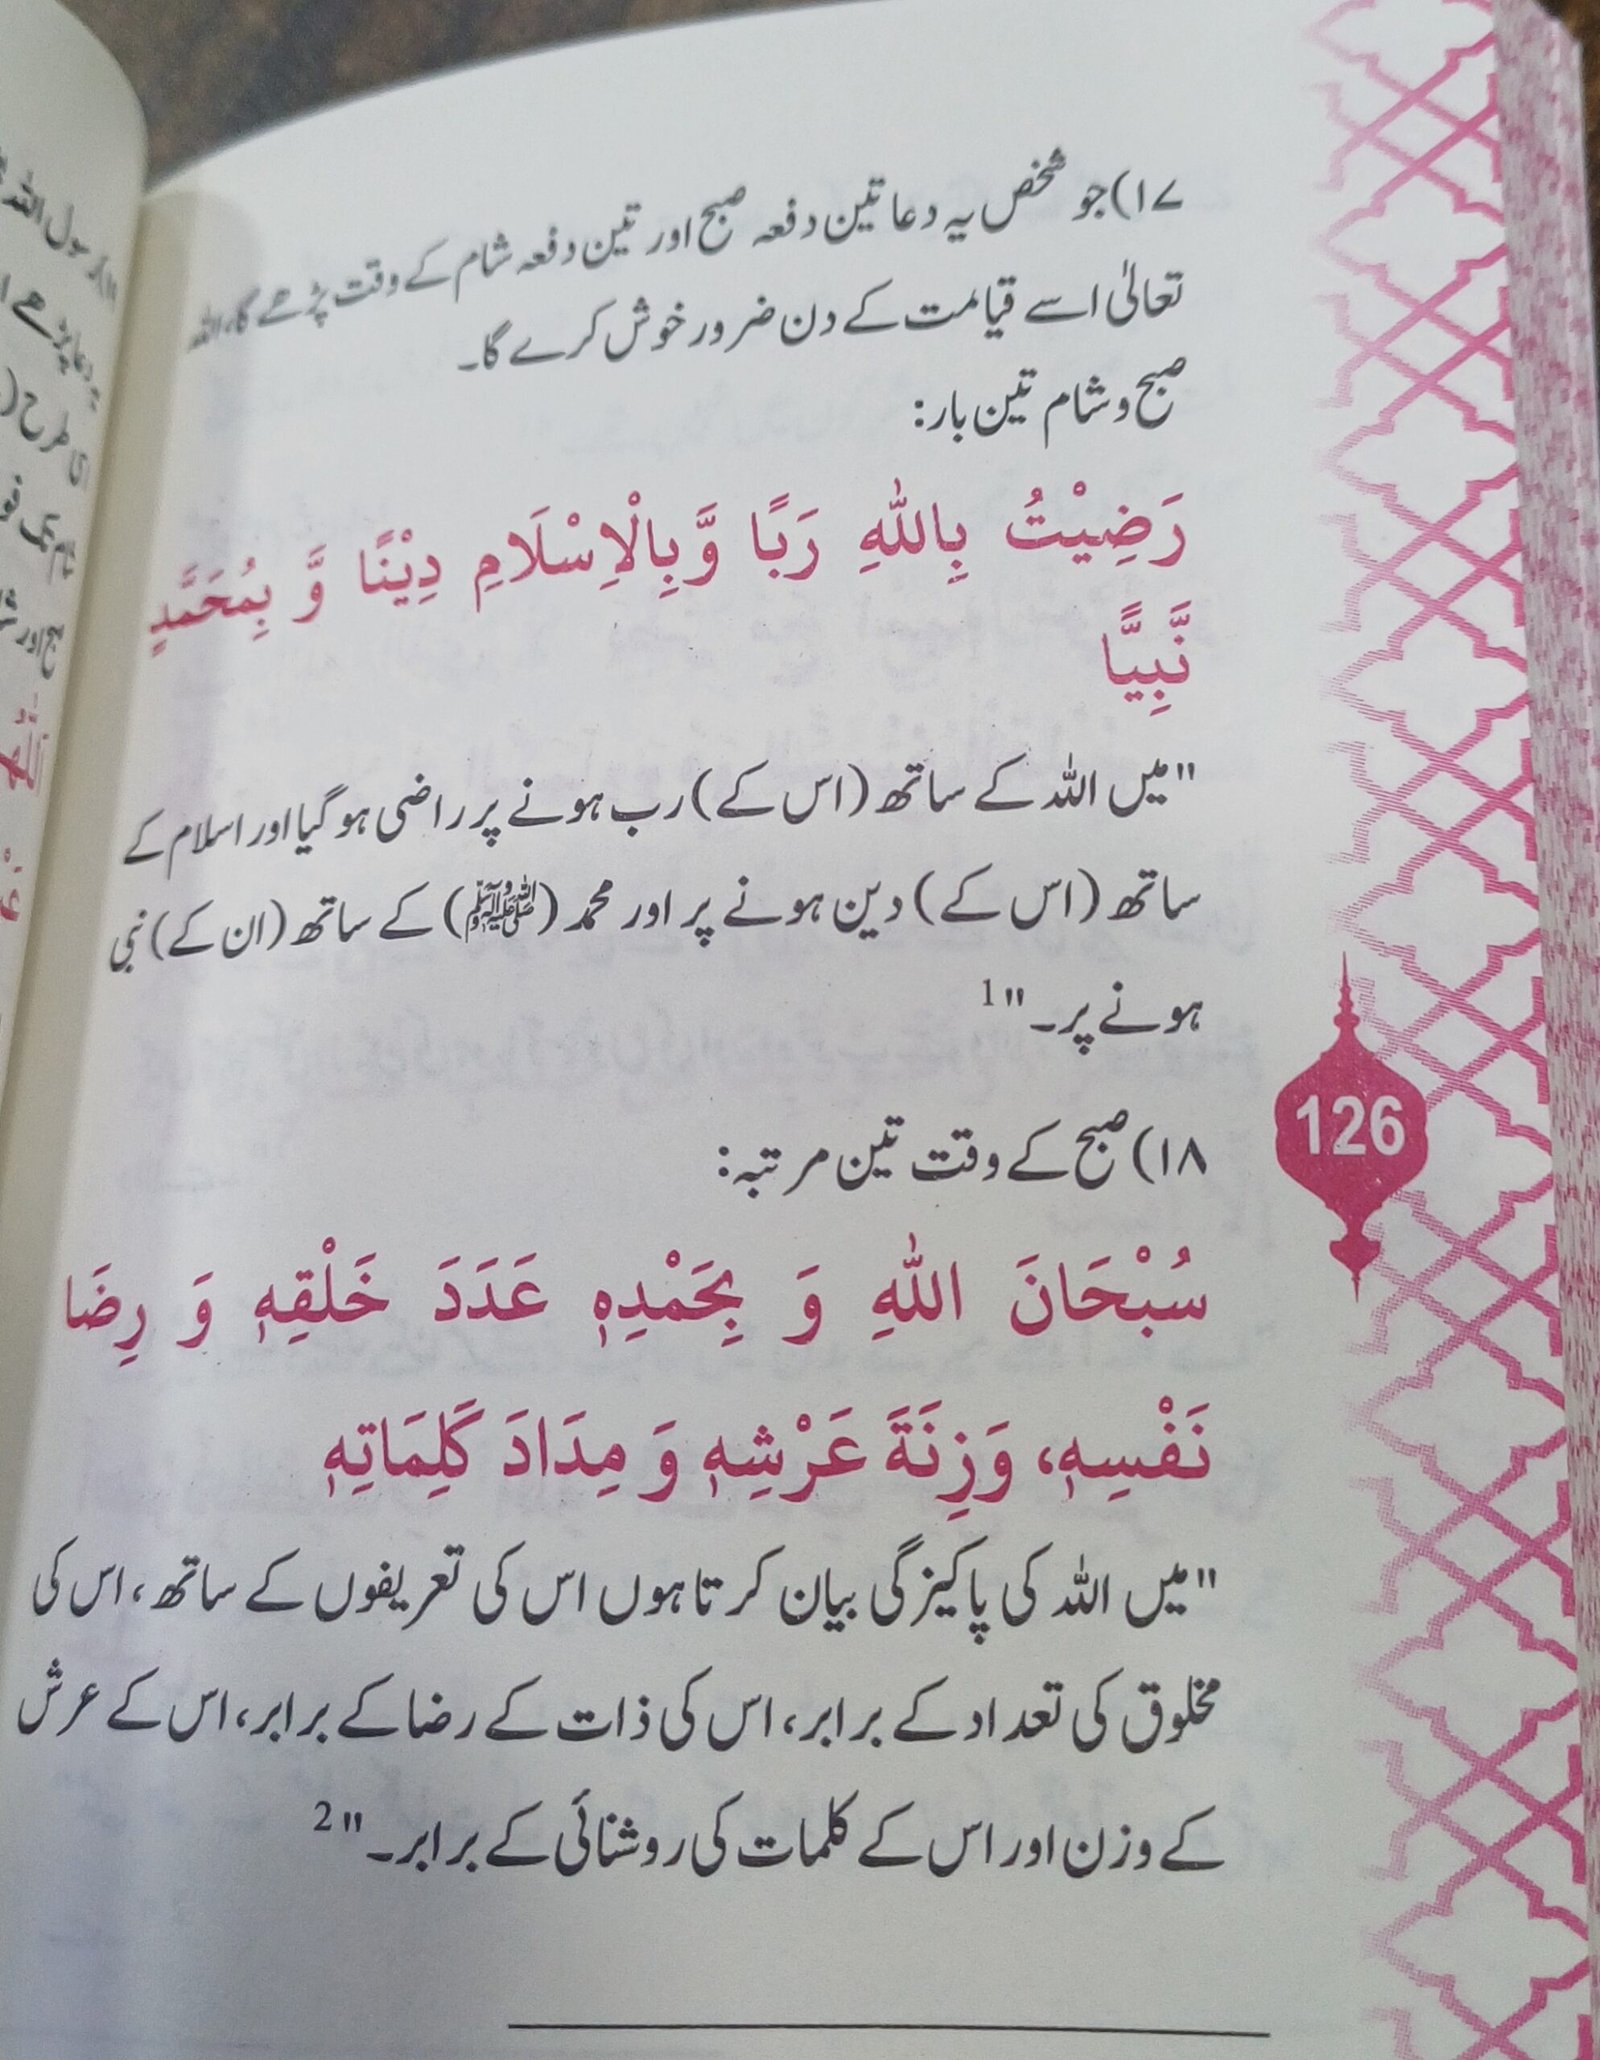 ۱۷) جو شخص یہ دعا تین دفعہ صبح اور تین دفعہ شام کے وقت پڑھے گا، اللہ
تعالیٰ اسے قیامت کے دن ضرور خوش کرے گا۔
صبح و شام تین بار:
رَضِيْتُ بِاللّٰهِ رَبًا وَّبِالْاِسْلَامِ دِيْنًا وَّ بِمُحَمَّدٍ
نَّبِيًّا
"میں اللہ کے ساتھ (اس کے) رب ہونے پر راضی ہو گیا اور اسلام کے
ساتھ (اس کے) دین ہونے پر اور محمد (ﷺ) کے ساتھ (ان کے) نبی
ہونے پر۔"1
126
۱۸) صبح کے وقت تین مرتبہ:
سُبْحَانَ اللّٰهِ وَ بِحَمْدِهٖ عَدَدَ خَلْقِهٖ وَ رِضَا
نَفْسِهٖ، وَزِنَةَ عَرْشِهٖ وَ مِدَادَ كَلِمَاتِهٖ
"میں اللہ کی پاکیزگی بیان کرتا ہوں اس کی تعریفوں کے ساتھ، اس کی
مخلوق کی تعداد کے برابر، اس کی ذات کے رضا کے برابر، اس کے عرش
کے وزن اور اس کے کلمات کی روشنائی کے برابر۔"2
رسول اللہ
طرح (
صبح اور